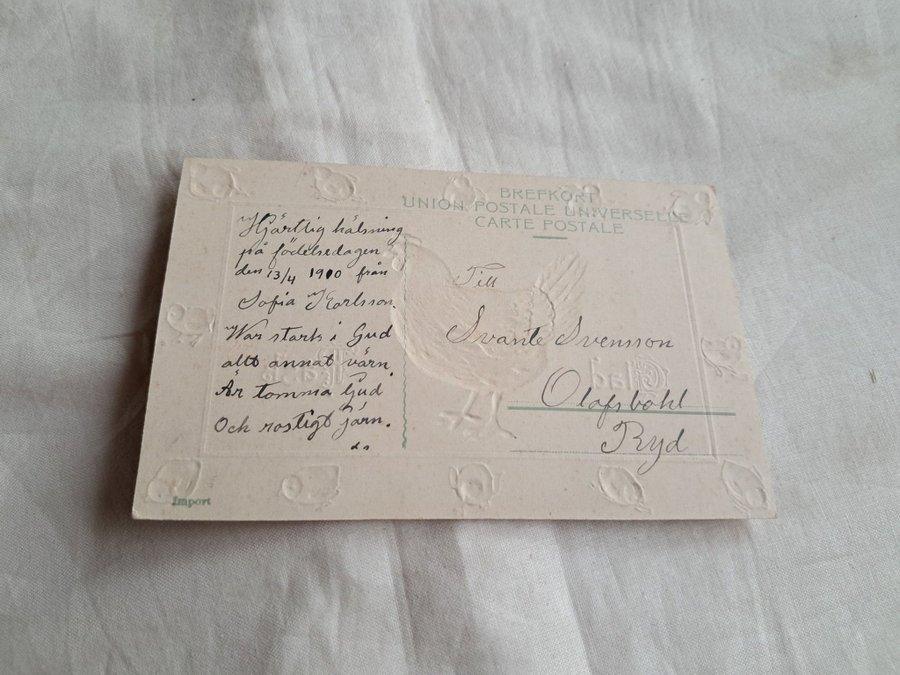 BREFKORT
UNION POSTALE UNIVERSELLE
CARTE POSTALE
Hjärtlig hälsning
på födelsedagen
den 13/4 1910 från
Sofia Karlsson.
War stark i Gud
allt annat värn
Är tomma ljud
Och rostigt järn.
ds
Till
Svante Svensson
Olofsbohl
Ryd
Glad
Import